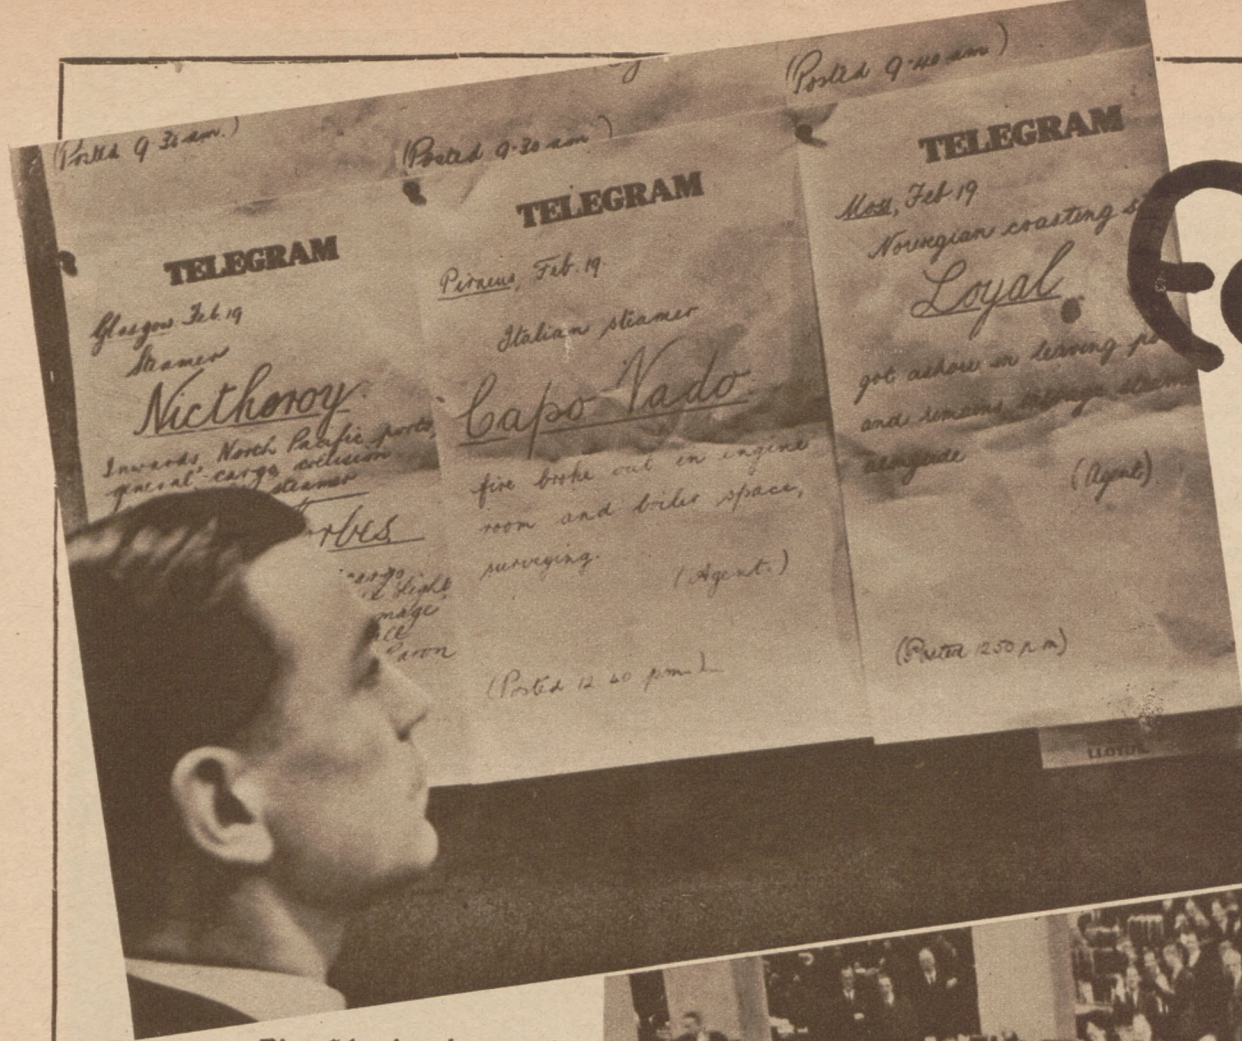 (Posted 9.30 am.)
(Posted 9.30 am)
(Posted 9.40 am)
TELEGRAM
Glasgow Feb. 19
Steamer
Nictheroy
Inwards North Pacific ports,
general cargo collision
steamer
TELEGRAM
Piraeus, Feb. 19.
Italian steamer
Capo Vado
fire broke out in engine
room and boiler space,
surveying.
(Agent.)
(Posted 12 40 pm.)
TELEGRAM
Moss, Feb 19
Norwegian coasting
Loyal
got ashore in leaving
and remains
alongside
(Agent)
(Posted 12 50 p m)
LLOYD'S